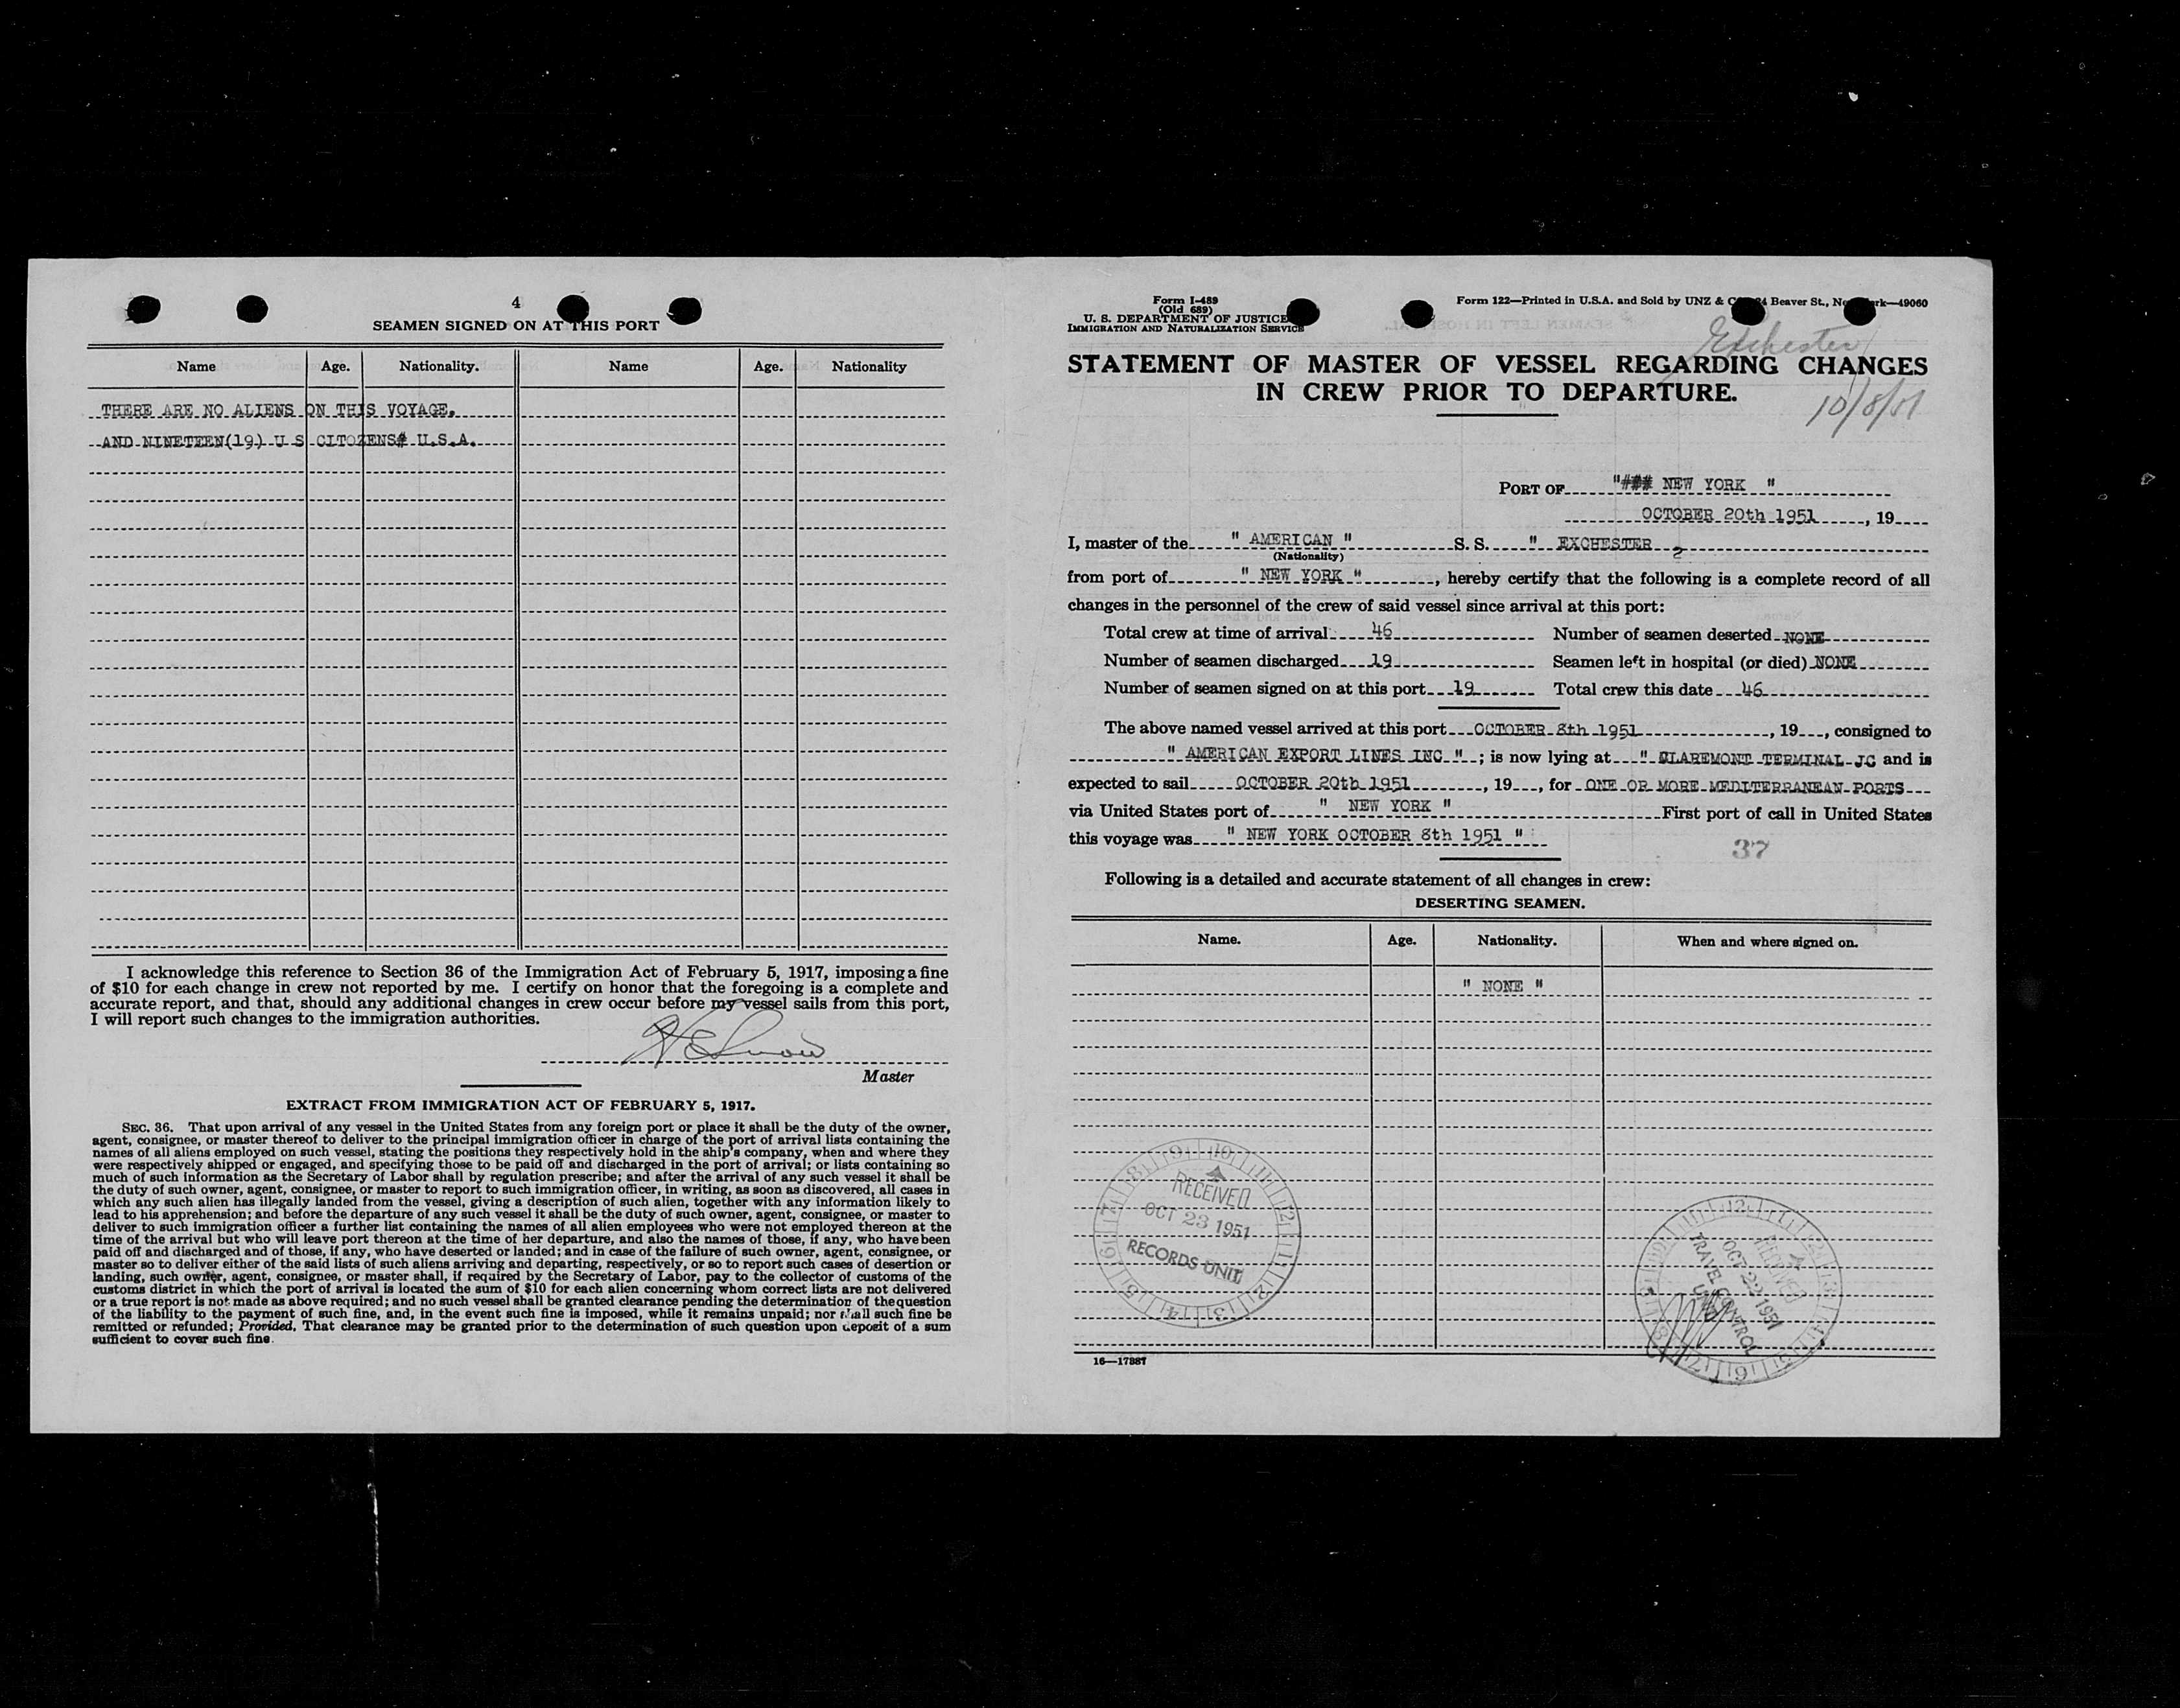 4
SEAMEN SIGNED ON AT THIS PORT
Name Age. Nationality. Name Age. Nationality
THERE ARE NO ALIENS ON THIS VOYAGE.
AND NINETEEN(19) U S CITOZENS# U.S.A.
I acknowledge this reference to Section 36 of the Immigration Act of February 5, 1917, imposing a fine
of $10 for each change in crew not reported by me. I certify on honor that the foregoing is a complete and
accurate report, and that, should any additional changes in crew occur before my vessel sails from this port,
I will report such changes to the immigration authorities.
Master
EXTRACT FROM IMMIGRATION ACT OF FEBRUARY 5, 1917.
SEC. 36. That upon arrival of any vessel in the United States from any foreign port or place it shall be the duty of the owner,
agent, consignee, or master thereof to deliver to the principal immigration officer in charge of the port of arrival lists containing the
names of all aliens employed on such vessel, stating the positions they respectively hold in the ship's company, when and where they
were respectively shipped or engaged, and specifying those to be paid off and discharged in the port of arrival; or lists containing so
much of such information as the Secretary of Labor shall by regulation prescribe; and after the arrival of any such vessel it shall be
the duty of such owner, agent, consignee, or master to report to such immigration officer, in writing, as soon as discovered, all cases in
which any such alien has illegally landed from the vessel, giving a description of such alien, together with any information likely to
lead to his apprehension; and before the departure of any such vessel it shall be the duty of such owner, agent, consignee, or master to
deliver to such immigration officer a further list containing the names of all alien employees who were not employed thereon at the
time of the arrival but who will leave port thereon at the time of her departure, and also the names of those, if any, who have been
paid off and discharged and of those, if any, who have deserted or landed; and in case of the failure of such owner, agent, consignee, or
master so to deliver either of the said lists of such aliens arriving and departing, respectively, or so to report such cases of desertion or
landing, such owner, agent, consignee, or master shall, if required by the Secretary of Labor, pay to the collector of customs of the
customs district in which the port of arrival is located the sum of $10 for each alien concerning whom correct lists are not delivered
or a true report is not made as above required; and no such vessel shall be granted clearance pending the determination of the question
of the liability to the payment of such fine, and, in the event such fine is imposed, while it remains unpaid; nor shall such fine be
remitted or refunded; Provided, That clearance may be granted prior to the determination of such question upon deposit of a sum
sufficient to cover such fine.
Form I-489
(Old 689)
U. S. DEPARTMENT OF JUSTICE
IMMIGRATION AND NATURALIZATION SERVICE
Form 122—Printed in U.S.A. and Sold by UNZ & Beaver St., 49060
Exchester
STATEMENT OF MASTER OF VESSEL REGARDING CHANGES
IN CREW PRIOR TO DEPARTURE.
10/8/51
PORT OF "### NEW YORK "
OCTOBER 20th 1951, 19
I, master of the " AMERICAN " S. S. " EXCHESTER
(Nationality)
from port of " NEW YORK ", hereby certify that the following is a complete record of all
changes in the personnel of the crew of said vessel since arrival at this port:
Total crew at time of arrival 46 Number of seamen deserted NONE
Number of seamen discharged 19 Seamen left in hospital (or died) NONE
Number of seamen signed on at this port 19 Total crew this date 46
The above named vessel arrived at this port OCTOBER 8th 1951, 19, consigned to
" AMERICAN EXPORT LINES INC "; is now lying at " CLAREMONT TERMINAL JC and is
expected to sail OCTOBER 20th 1951, 19, for ONE OR MORE MEDITERRANEAN PORTS
via United States port of " NEW YORK " First port of call in United States
this voyage was " NEW YORK OCTOBER 8th 1951 "
37
Following is a detailed and accurate statement of all changes in crew:
DESERTING SEAMEN.
Name. Age. Nationality. When and where signed on.
" NONE "
RECEIVED
OCT 23 1951
RECORDS UNIT
OCT 22 1951
TRAVEL CONTROL
UNIT
16—17887